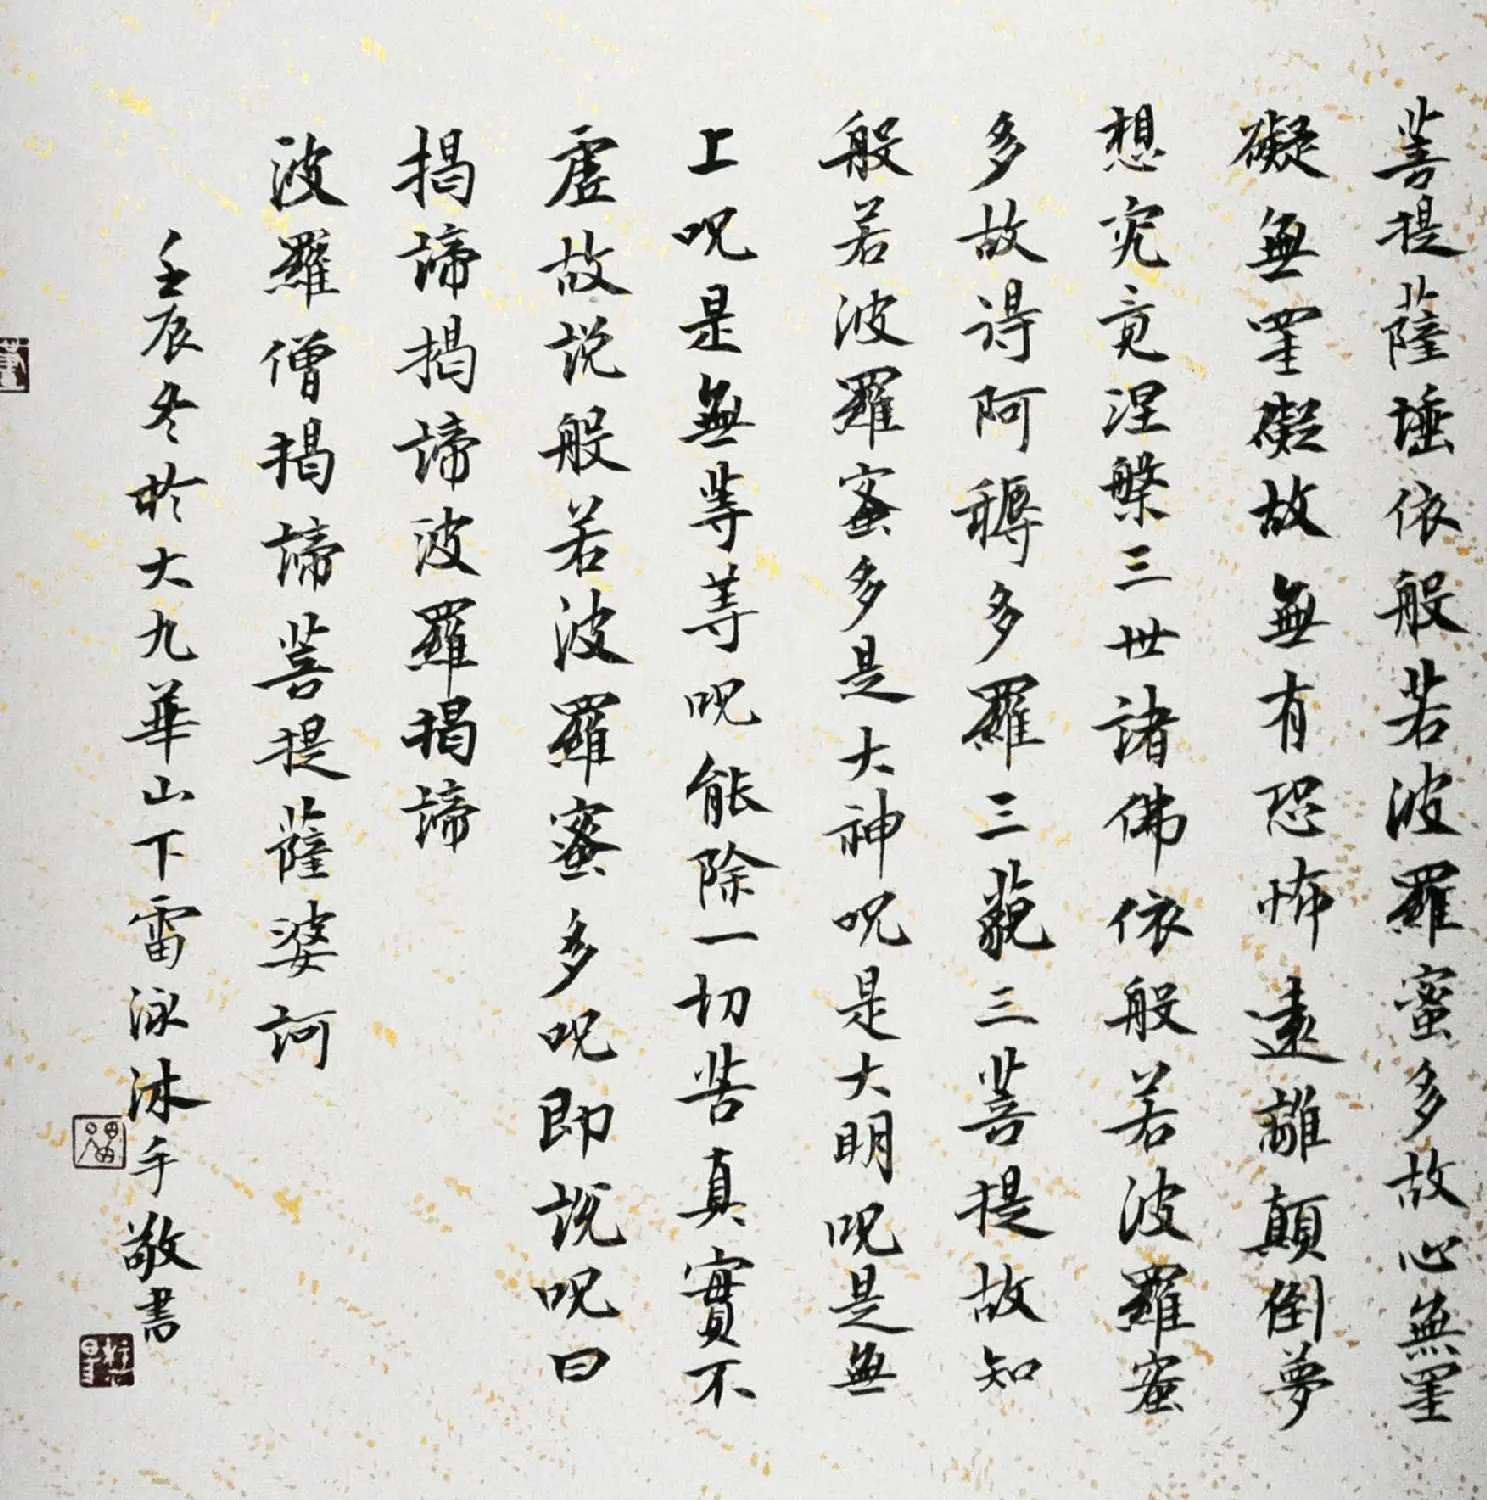 菩提薩埵依般若波羅蜜多故心無罣
礙無罣礙故無有恐怖遠離顛倒夢
想究竟涅槃三世諸佛依般若波羅蜜
多故得阿耨多羅三藐三菩提故知
般若波羅蜜多是大神呪是大明呪是無
上呪是無等等呪能除一切苦真實不
虛故説般若波羅蜜多呪即説呪曰
揭諦揭諦波羅揭諦
波羅僧揭諦菩提薩婆訶
壬辰冬於大九華山下雷泳沐手敬書